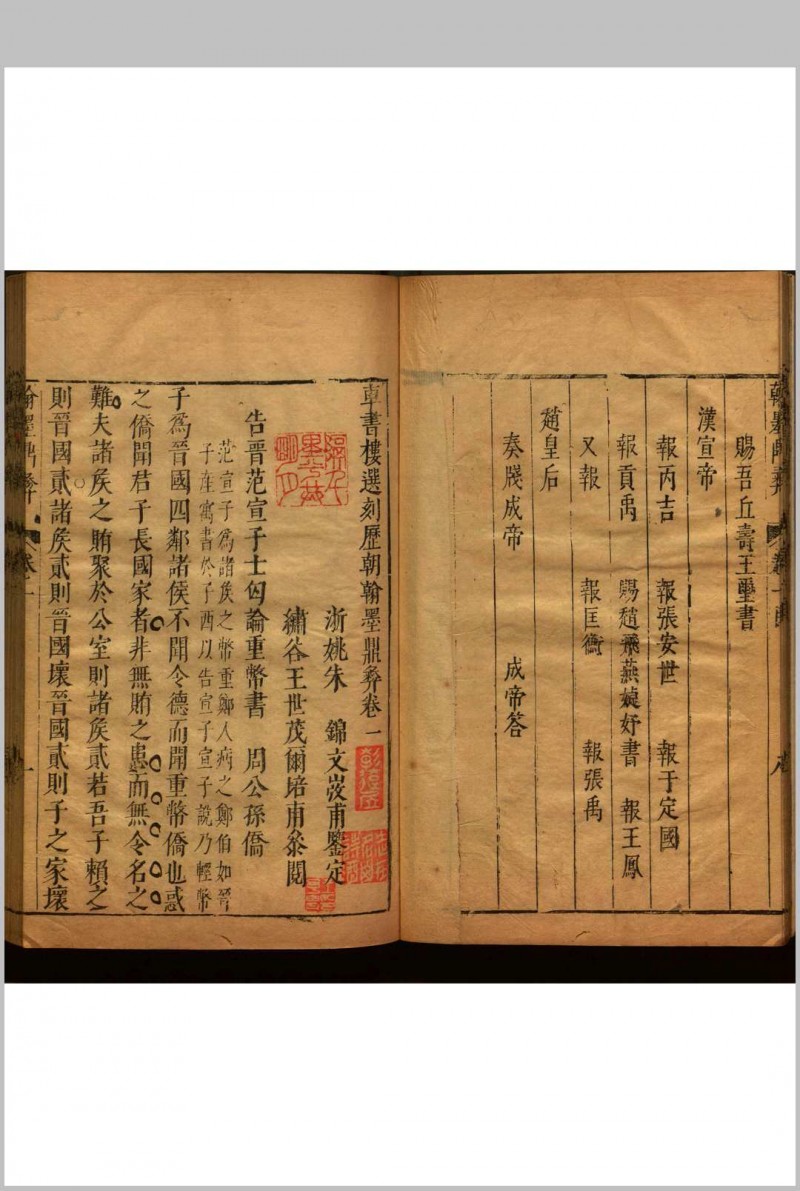 賜吾丘壽王璽書
漢宣帝
報丙吉 報張安世 報于定國
報貢禹 賜趙飛燕婕妤書 報王鳳
又報 報匡衡 報張禹
趙皇后
奏牋成帝 成帝答
車書樓選刻歷朝翰墨鼎彝卷一
浙姚朱 錦文弢甫鑒定
繡谷王世茂爾培甫叅閱
告晉范宣子士匄論重幣書 周公孫僑
范宣子爲諸矦之幣重鄭人病之鄭伯如晉
子產寓書於子西以告宣子宣子說乃輕幣
子爲晉國四鄰諸侯不聞令德而聞重幣僑也惑
之僑聞君子長國家者非無賄之患而無令名之
難夫諸矦之賄聚於公室則諸矦貳若吾子賴之
則晉國貳諸矦貳則晉國壞晉國貳則子之家壞
翰墨鼎彝 卷一 一